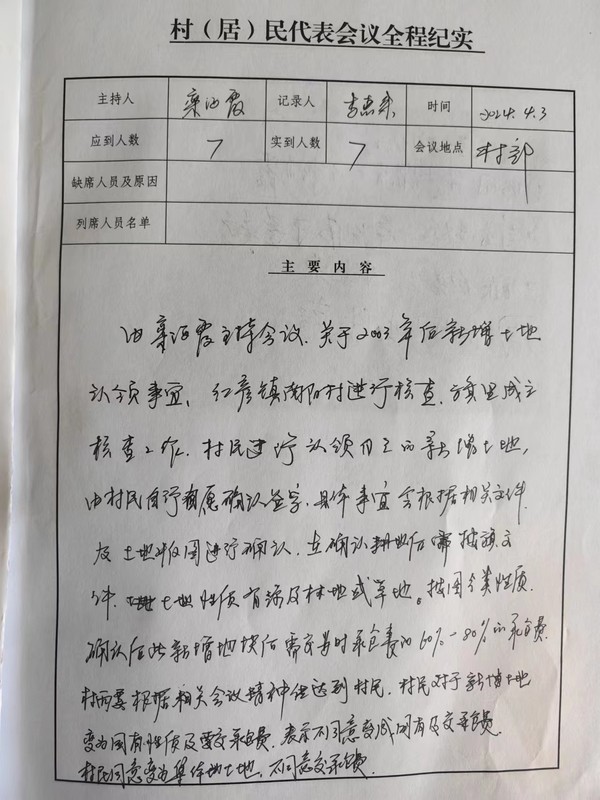 村（居）民代表会议全程纪实
主持人 栾海霞 记录人 时间 2024.4.3
应到人数 7 实到人数 7 会议地点 村部
缺席人员及原因
列席人员名单
主要内容
由栾海霞主持会议，关于2003年后新增土地
认领事宜，红彦镇南阳村进行核查，旗里成立
核查工作，村民进行认领自己的新增土地，
由村民自行自愿确认签字，具体事宜会根据相关文件
及土地版图进行确认，在确认耕地后需按旗文
件，土地性质有涉及林地或草地。按图分类性质，
确认后此新增地块后需交当时承包费的60%-80%的承包费，
村两委根据相关会议精神传达到村民，村民对于新增土地
变为国有性质及要交承包费，表示不同意变成国有及交承包费，
村民同意变为集体地土地，不同意交承包费。